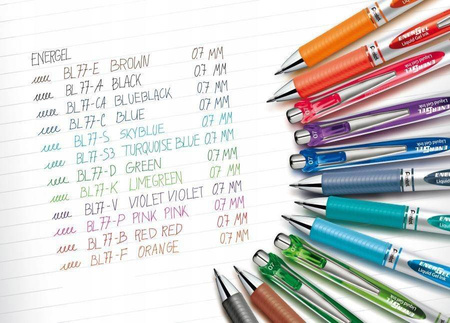 ENERGEL
BL77-E BROWN 0.7 MM
BL77-A BLACK 0.7 MM
BL77-CA BLUEBLACK 0.7 MM
BL77-C BLUE 0.7 MM
BL77-S SKYBLUE 0.7 MM
BL77-S3 TURQUOISE BLUE 0.7 MM
BL77-D GREEN 0.7 MM
BL77-K LIMEGREEN 0.7 MM
BL77-V VIOLET VIOLET 0.7 MM
BL77-P PINK PINK 0.7 MM
BL77-B RED RED 0.7 MM
BL77-F ORANGE 0.7 MM
ENERGEL
Liquid Gel Ink
ENERGEL
Liquid Gel Ink
ENERGEL
Liquid Gel Ink
ENERGEL
Liquid Gel Ink
ENERGEL
Liquid Gel Ink
ENERGEL
Liquid Gel Ink